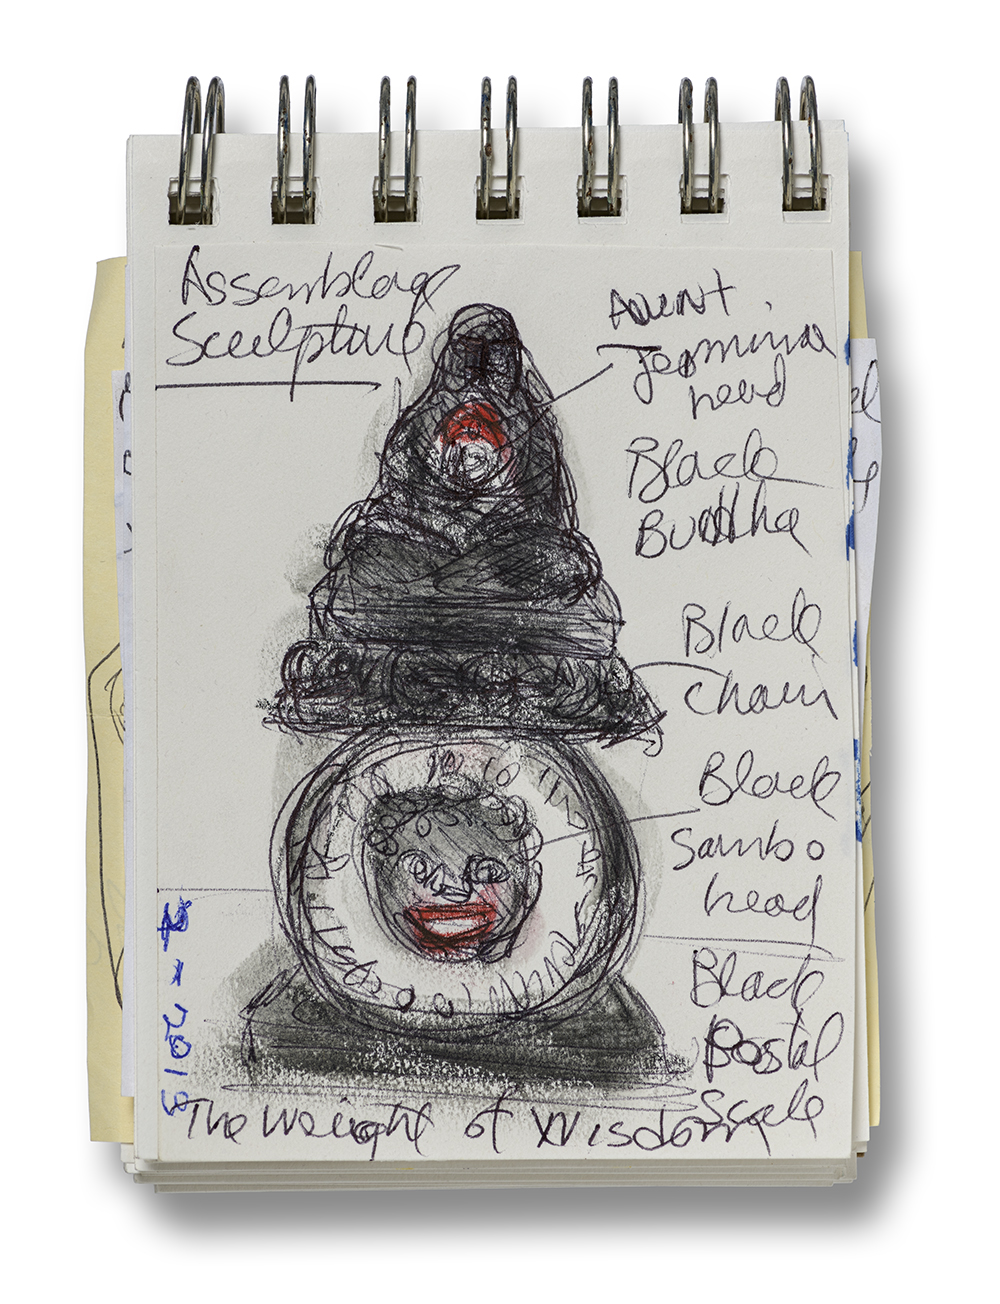 Assemblag
Sculpture
Aunt
Jemmina
head
Black
Buddha
Black
Chain
Black
Sambo
head
Black
Postal
Scale
The Weight of Wisdom
4-2013